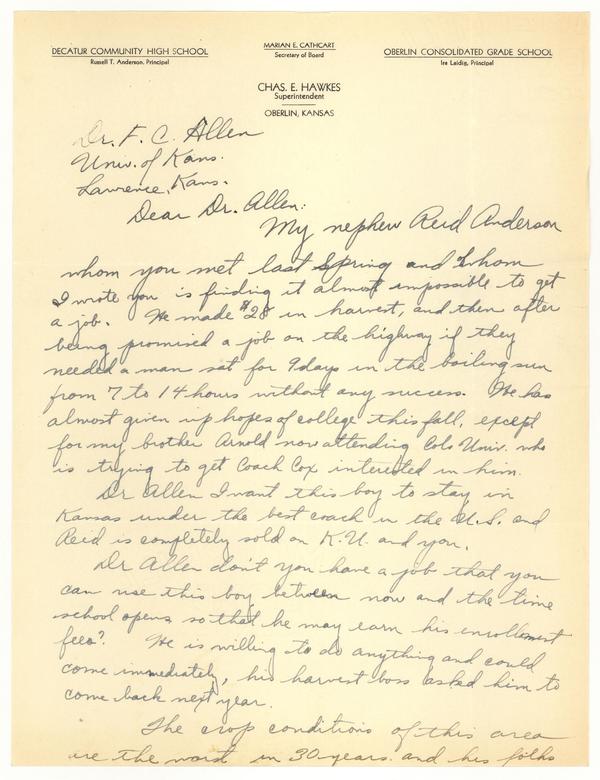 DECATUR COMMUNITY HIGH SCHOOL
Russell T. Anderson, Principal
MARIAN E. CATHCART
Secretary of Board
OBERLIN CONSOLIDATED GRADE SCHOOL
Ira Laidig, Principal
CHAS. E. HAWKES
Superintendent
OBERLIN, KANSAS
Dr. F. C. Allen
Univ. of Kans.
Lawrence, Kans.
Dear Dr. Allen:
My nephew Reid Anderson
whom you met last Spring and whom
I wrote you is finding it almost impossible to get
a job. He made $28 in harvest, and then after
being promised a job on the highway if they
needed a man sat for 9 days in the boiling sun
from 7 to 14 hours without any success. He has
almost given up hopes of college this fall, except
for my brother Arnold now attending Colo Univ. who
is trying to get Coach Cox interested in him.
Dr Allen I want this boy to stay in
Kansas under the best coach in the U.S. and
Reid is completely sold on K.U. and you.
Dr Allen don't you have a job that you
can use this boy between now and the time
school opens so that he may earn his enrollment
fees? He is willing to do anything and could
come immediately, his harvest boss asked him to
come back next year.
The crop conditions of this area
are the worst in 30 years and his folks